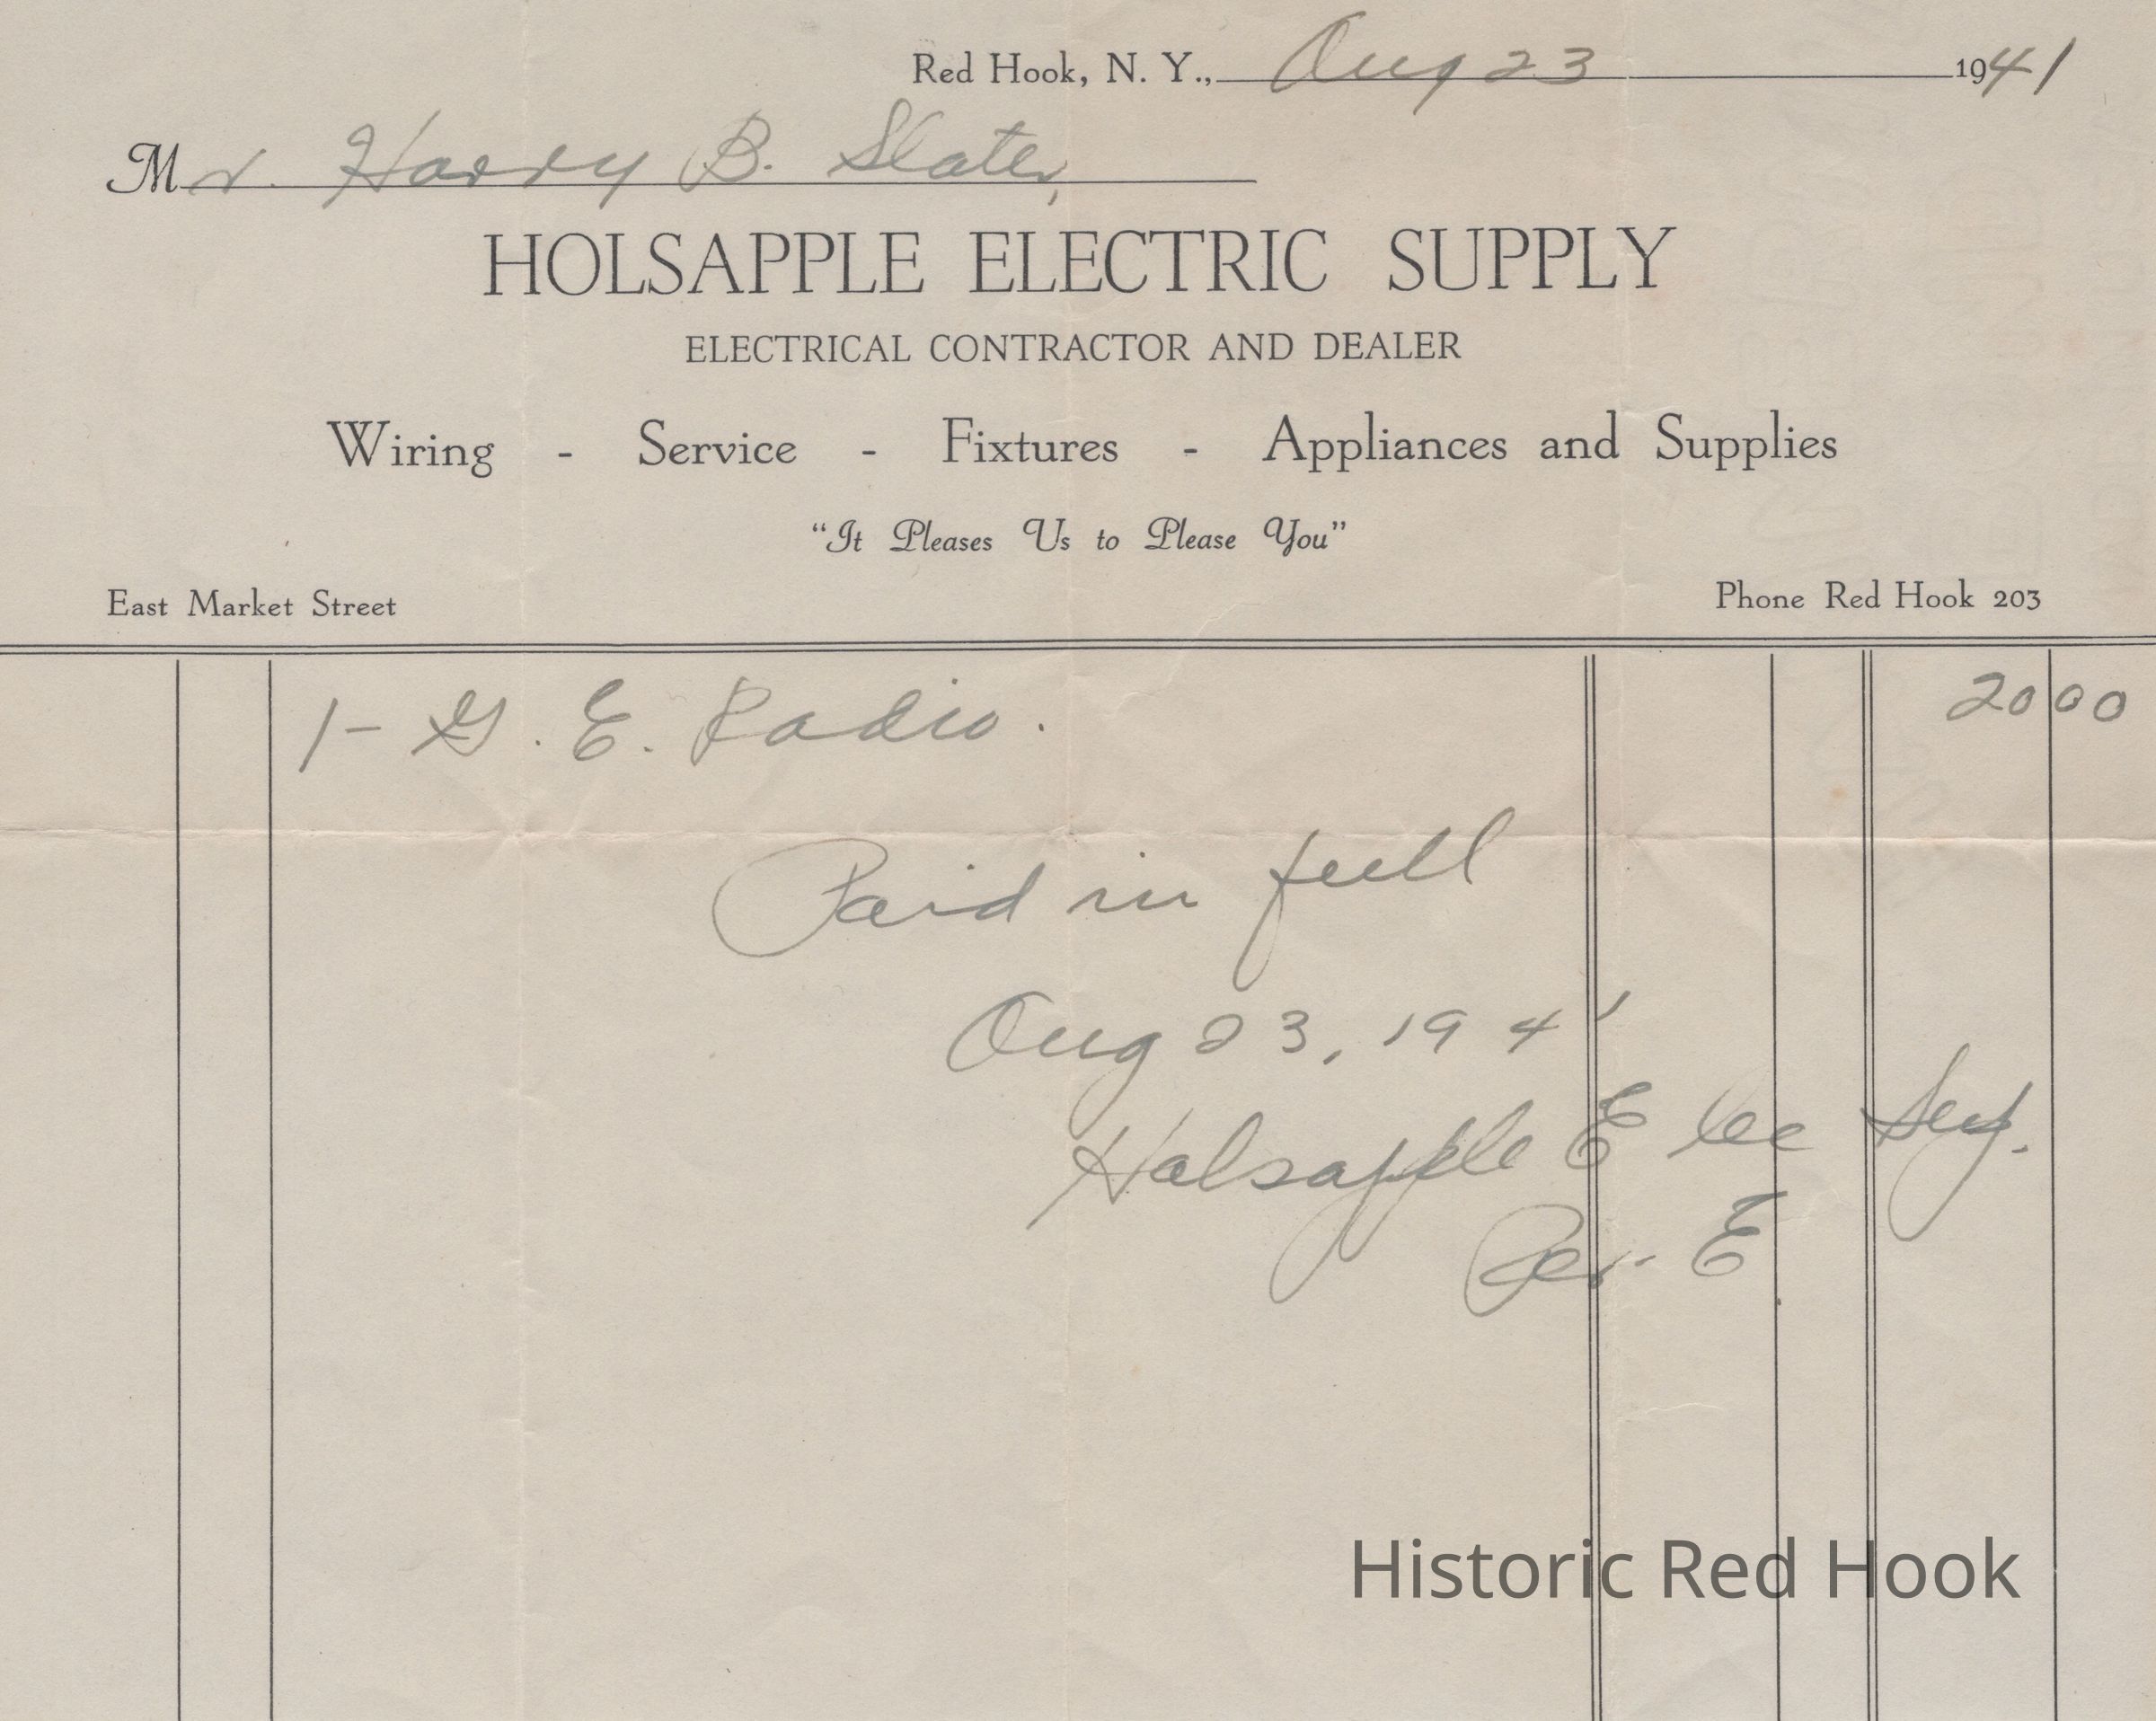 Red Hook, N. Y., Aug 23 1941
Mr. Harry B. Slater,
HOLSAPPLE ELECTRIC SUPPLY
ELECTRICAL CONTRACTOR AND DEALER
Wiring - Service - Fixtures - Appliances and Supplies
"It Pleases Us to Please You"
East Market Street Phone Red Hook 203
1- G. E. Radio. 20 00
Paid in full
Aug 23, 1941
Holsapple Elec Sup.
Per. E
Historic Red Hook